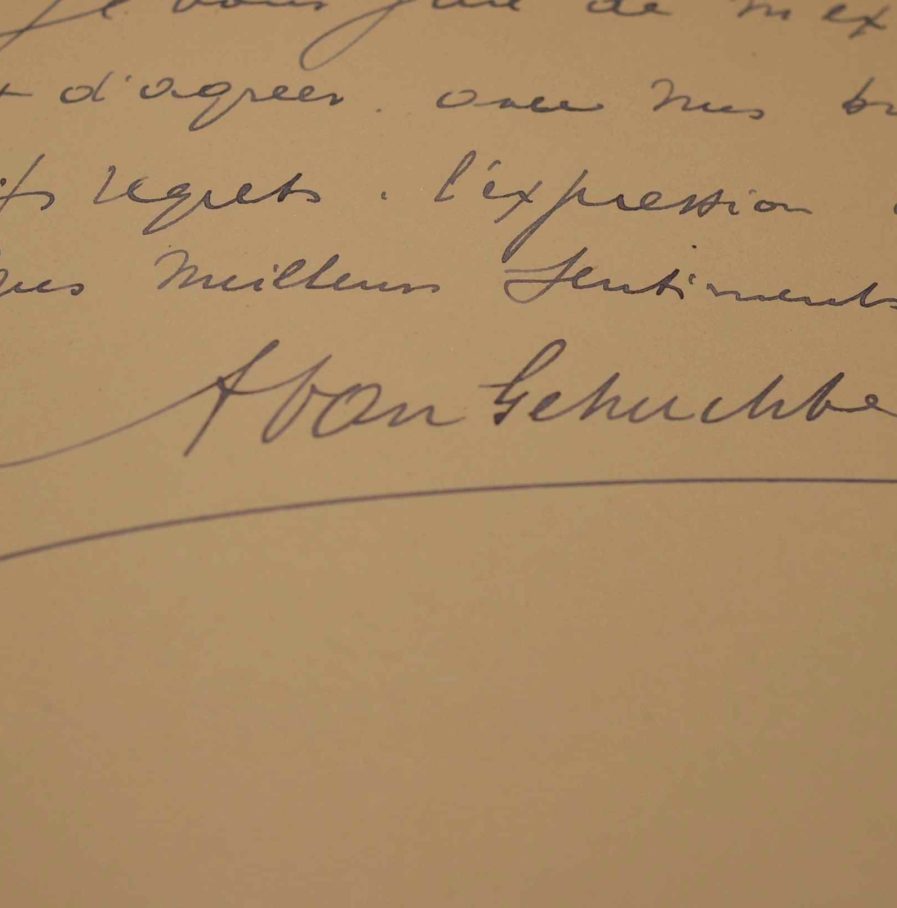 Je vous prie de m'ex
d'agréer. avec mes
ifs regrets. l'expression
mes meilleurs sentiments
A van Gehuchte